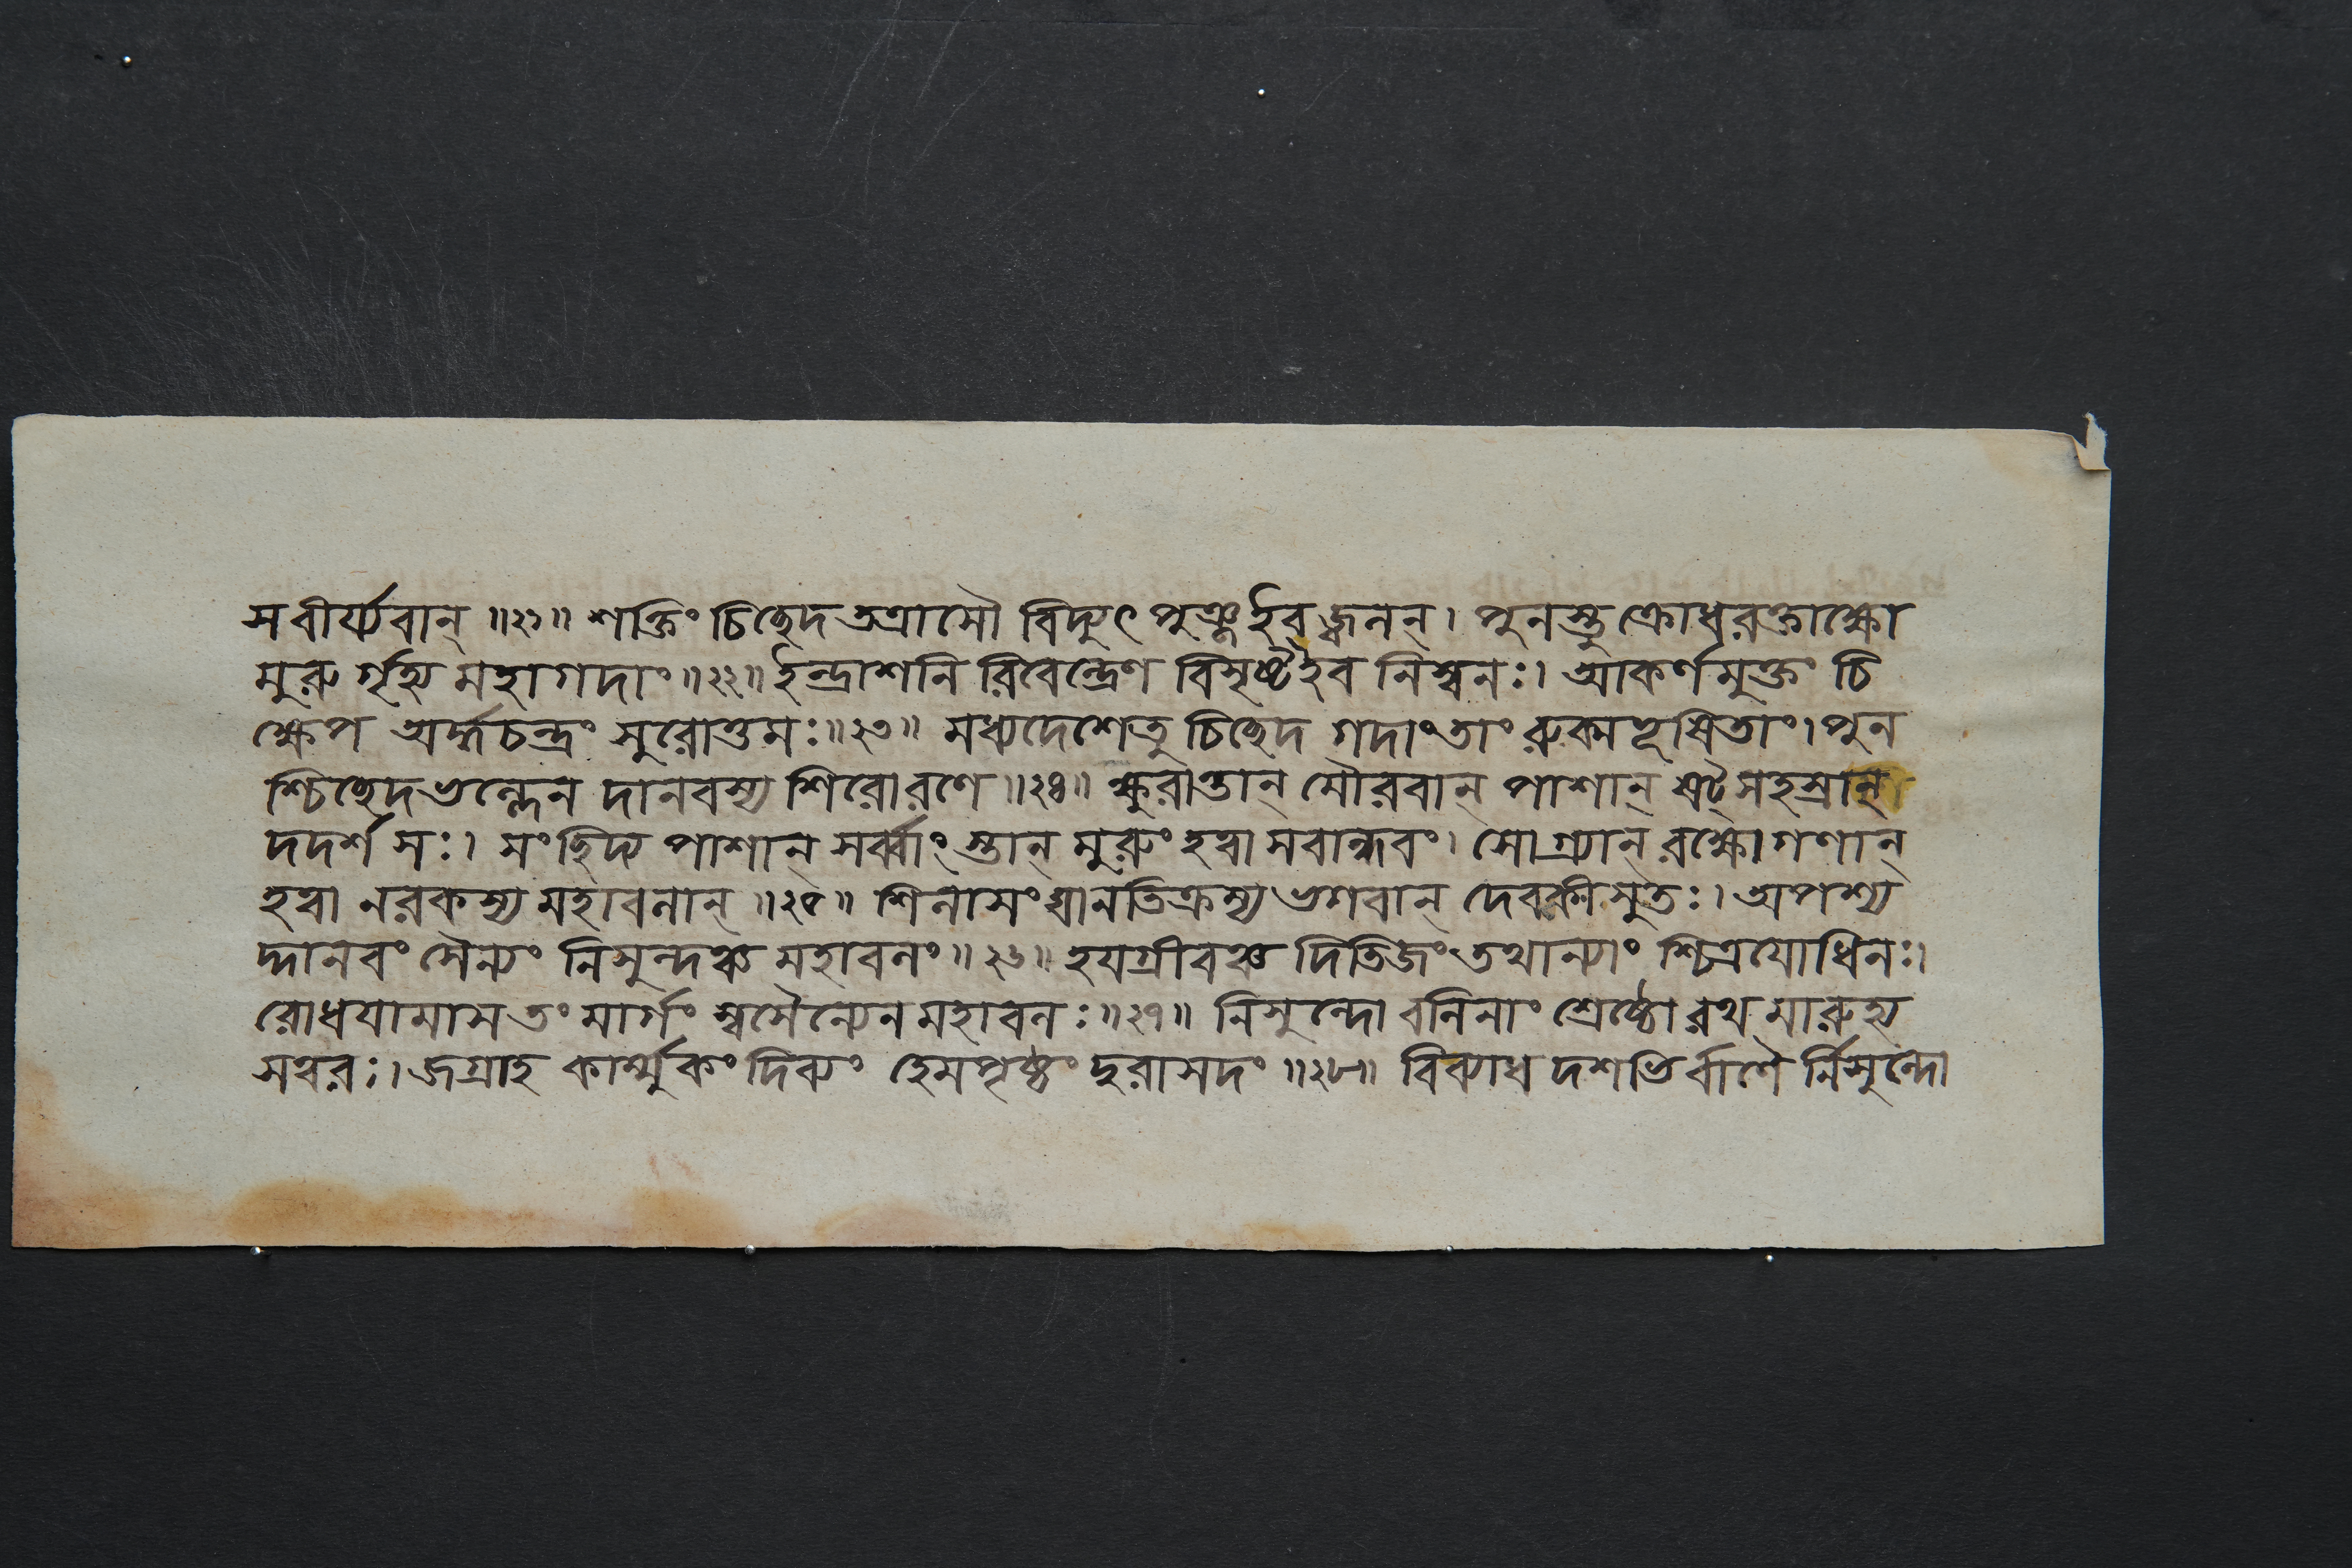 স বীর্য্যবান্ ॥২১॥ শক্তিং চিচ্ছেদ তত্রাসৌ বিদ্যুৎ পুঞ্জ ইব জ্বলন্। পুনস্তু ক্রোধরক্তাক্ষো
মুরু র্গৃহ্য মহাগদাং॥২২॥ ইন্দ্রাশনি রিবেন্দ্রেণ বিসৃষ্টৈব নিস্বনঃ। আকর্ণমুক্তং চি
ক্ষেপ অর্দ্ধচন্দ্রং সুরোত্তমঃ॥২৩॥ মধ্যদেশেতু চিচ্ছেদ গদাং তাং রুক্মভূষিতাং। পুন
শ্চিচ্ছেদ ভল্লেন দানবস্য শিরো রণে॥২৪॥ ক্ষুরান্তান্ মৌরবান্ পাশান্ ষট্ সহস্রান্
দদর্শ সঃ। সংছিদ্য পাশান্ সর্ব্বাং স্তান্ মুরুং হত্বা সবান্ধবং। সোগ্র্যান্ রক্ষোগণান্
হত্বা নরকস্য মহাবলান্ ॥২৫॥ শিলাসংঘানতিক্রম্য ভগবান্ দেবকীসুতঃ। অপশ্য
দ্দানবং সৈন্যং নিসুন্দঞ্চ মহাবলং॥২৬॥ হয়গ্রীবঞ্চ দিতিজং তথান্যাং শ্চিত্রযোধিনঃ।
রোধয়ামাস তং মার্গং স্বসৈন্যেন মহাবলঃ॥২৭॥ নিসুন্দো বলিনাং শ্রেষ্ঠো রথ মারুহ্য
সত্বরঃ। জগ্রাহ কার্ম্মুকং দিব্যং হেমপৃষ্ঠং দুরাসদং ॥২৮॥ বিব্যাধ দশভি র্বাণৈ র্নিসুন্দো